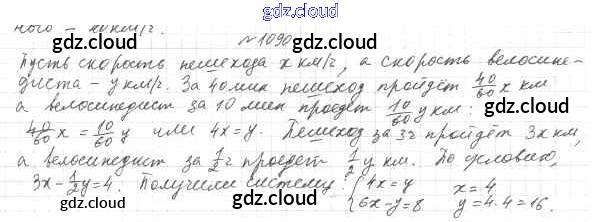 ного – x км/г.
gdz.cloud
gdz.cloud gdz.cloud
№1090
Пусть скорость пешехода x км/г, а скорость велосипе-
диста – y км/г. За 40 мин пешеход пройдёт 40/60 x км
gdz.cloud gdz.cloud
а велосипедист за 10 мин проедет 10/60 y км:
40/60 x = 10/60 y или 4x = y. Пешеход за 3г пройдёт 3x км,
gdz.cloud gdz.cloud
а велосипедист за 1/2 г проедет 1/2 y км. По условию,
3x - 1/2 y = 4. Получили систему: { 4x = y x = 4
6x - y = 8 y = 4·4 = 16.
gdz.cloud gdz.cloud